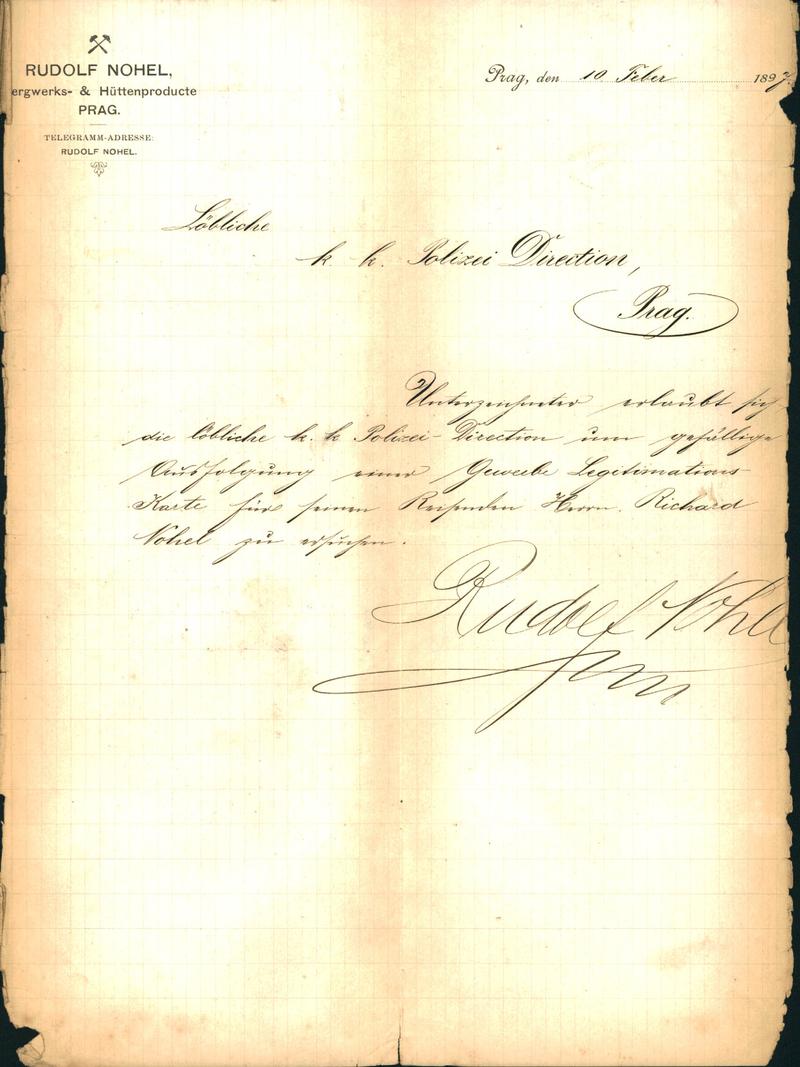 RUDOLF NOHEL,
ergwerks- & Hüttenproducte
PRAG.
TELEGRAMM-ADRESSE:
RUDOLF NOHEL.
Prag, den 10 Feber 1897.
Löbliche
k. k. Polizei Direction,
Prag.
Unterzeichneter erlaubt sich
die löbliche k. k Polizei-Direction um gefällige
Ausfolgung einer Gewerbe Legitimations
Karte für seinen Reisenden Herrn. Richard
Nohel zu ersuchen.
Rudolf Nohel